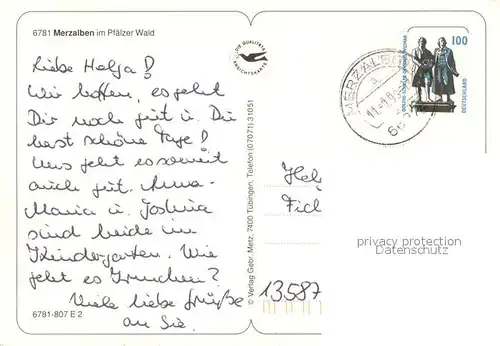 6781 Merzalben im Pfälzer Wald
Liebe Helga!
Wir hoffen, es geht
Dir noch gut u. Du
hast schöne Tage!
Uns geht es soweit
auch gut. Anna-
Maria u. Joshua
sind beide im
Kindergarten. Wie
geht es
Viele liebe Grüße
an Sie.
6781-807 E 2
DIE QUALITÄTS
ANSICHTSKARTE
© Verlag Gebr. Metz, 7400 Tübingen, Telefon (07071) 31051
MERZALBEN
100
DEUTSCHLAND
Hel
Fich
privacy protection
Datenschutz
13587